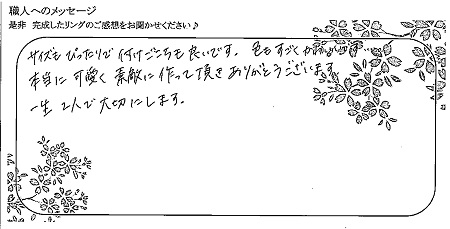 職人へのメッセージ
是非 完成したリングのご感想をお聞かせください♪
サイズも ぴったりで 付けごこちも 良いです。 色も すごく かわいいです
本当に 可愛く 素敵に 作って 頂き ありがとうございます
一生 2人で 大切にします。